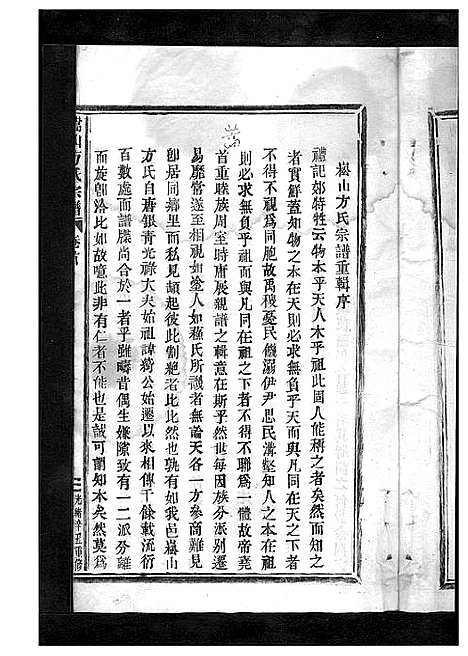 崧山方氏宗譜重輯序
禮記郊特牲云物本乎天人本乎祖此固人能稱之者矣然而知之
者實鮮蓋知物之本在天則必求無負乎天而與凡同在天之下者
不得不視爲同胞故禹稷憂民饑溺伊尹思民溝壑知人之本在祖
則必求無負乎祖而與凡同在祖之下者不得不聯爲一體故帝堯
首重睦族周室時庸展親譜之輯意在斯乎然世每因族分派別遷
易靡常遂至相視如塗人如蘇氏所譏者無論天各一方參商難見
卽居同鄉里而私見頡起彼此劃絶者比比然也孰有如我邑崧山
方氏自唐銀青光祿大夫始祖諱 公始遷以來相傳千餘載流衍
百數處而譜牒尚合於一者乎雖疇昔偶生嫌隙致有一二派分離
而旋卽洽比如故噫此非有仁者不能也是誠可謂知本矣然莫爲
嵩
山方氏宗譜
卷首
一
光緒辛丑重修